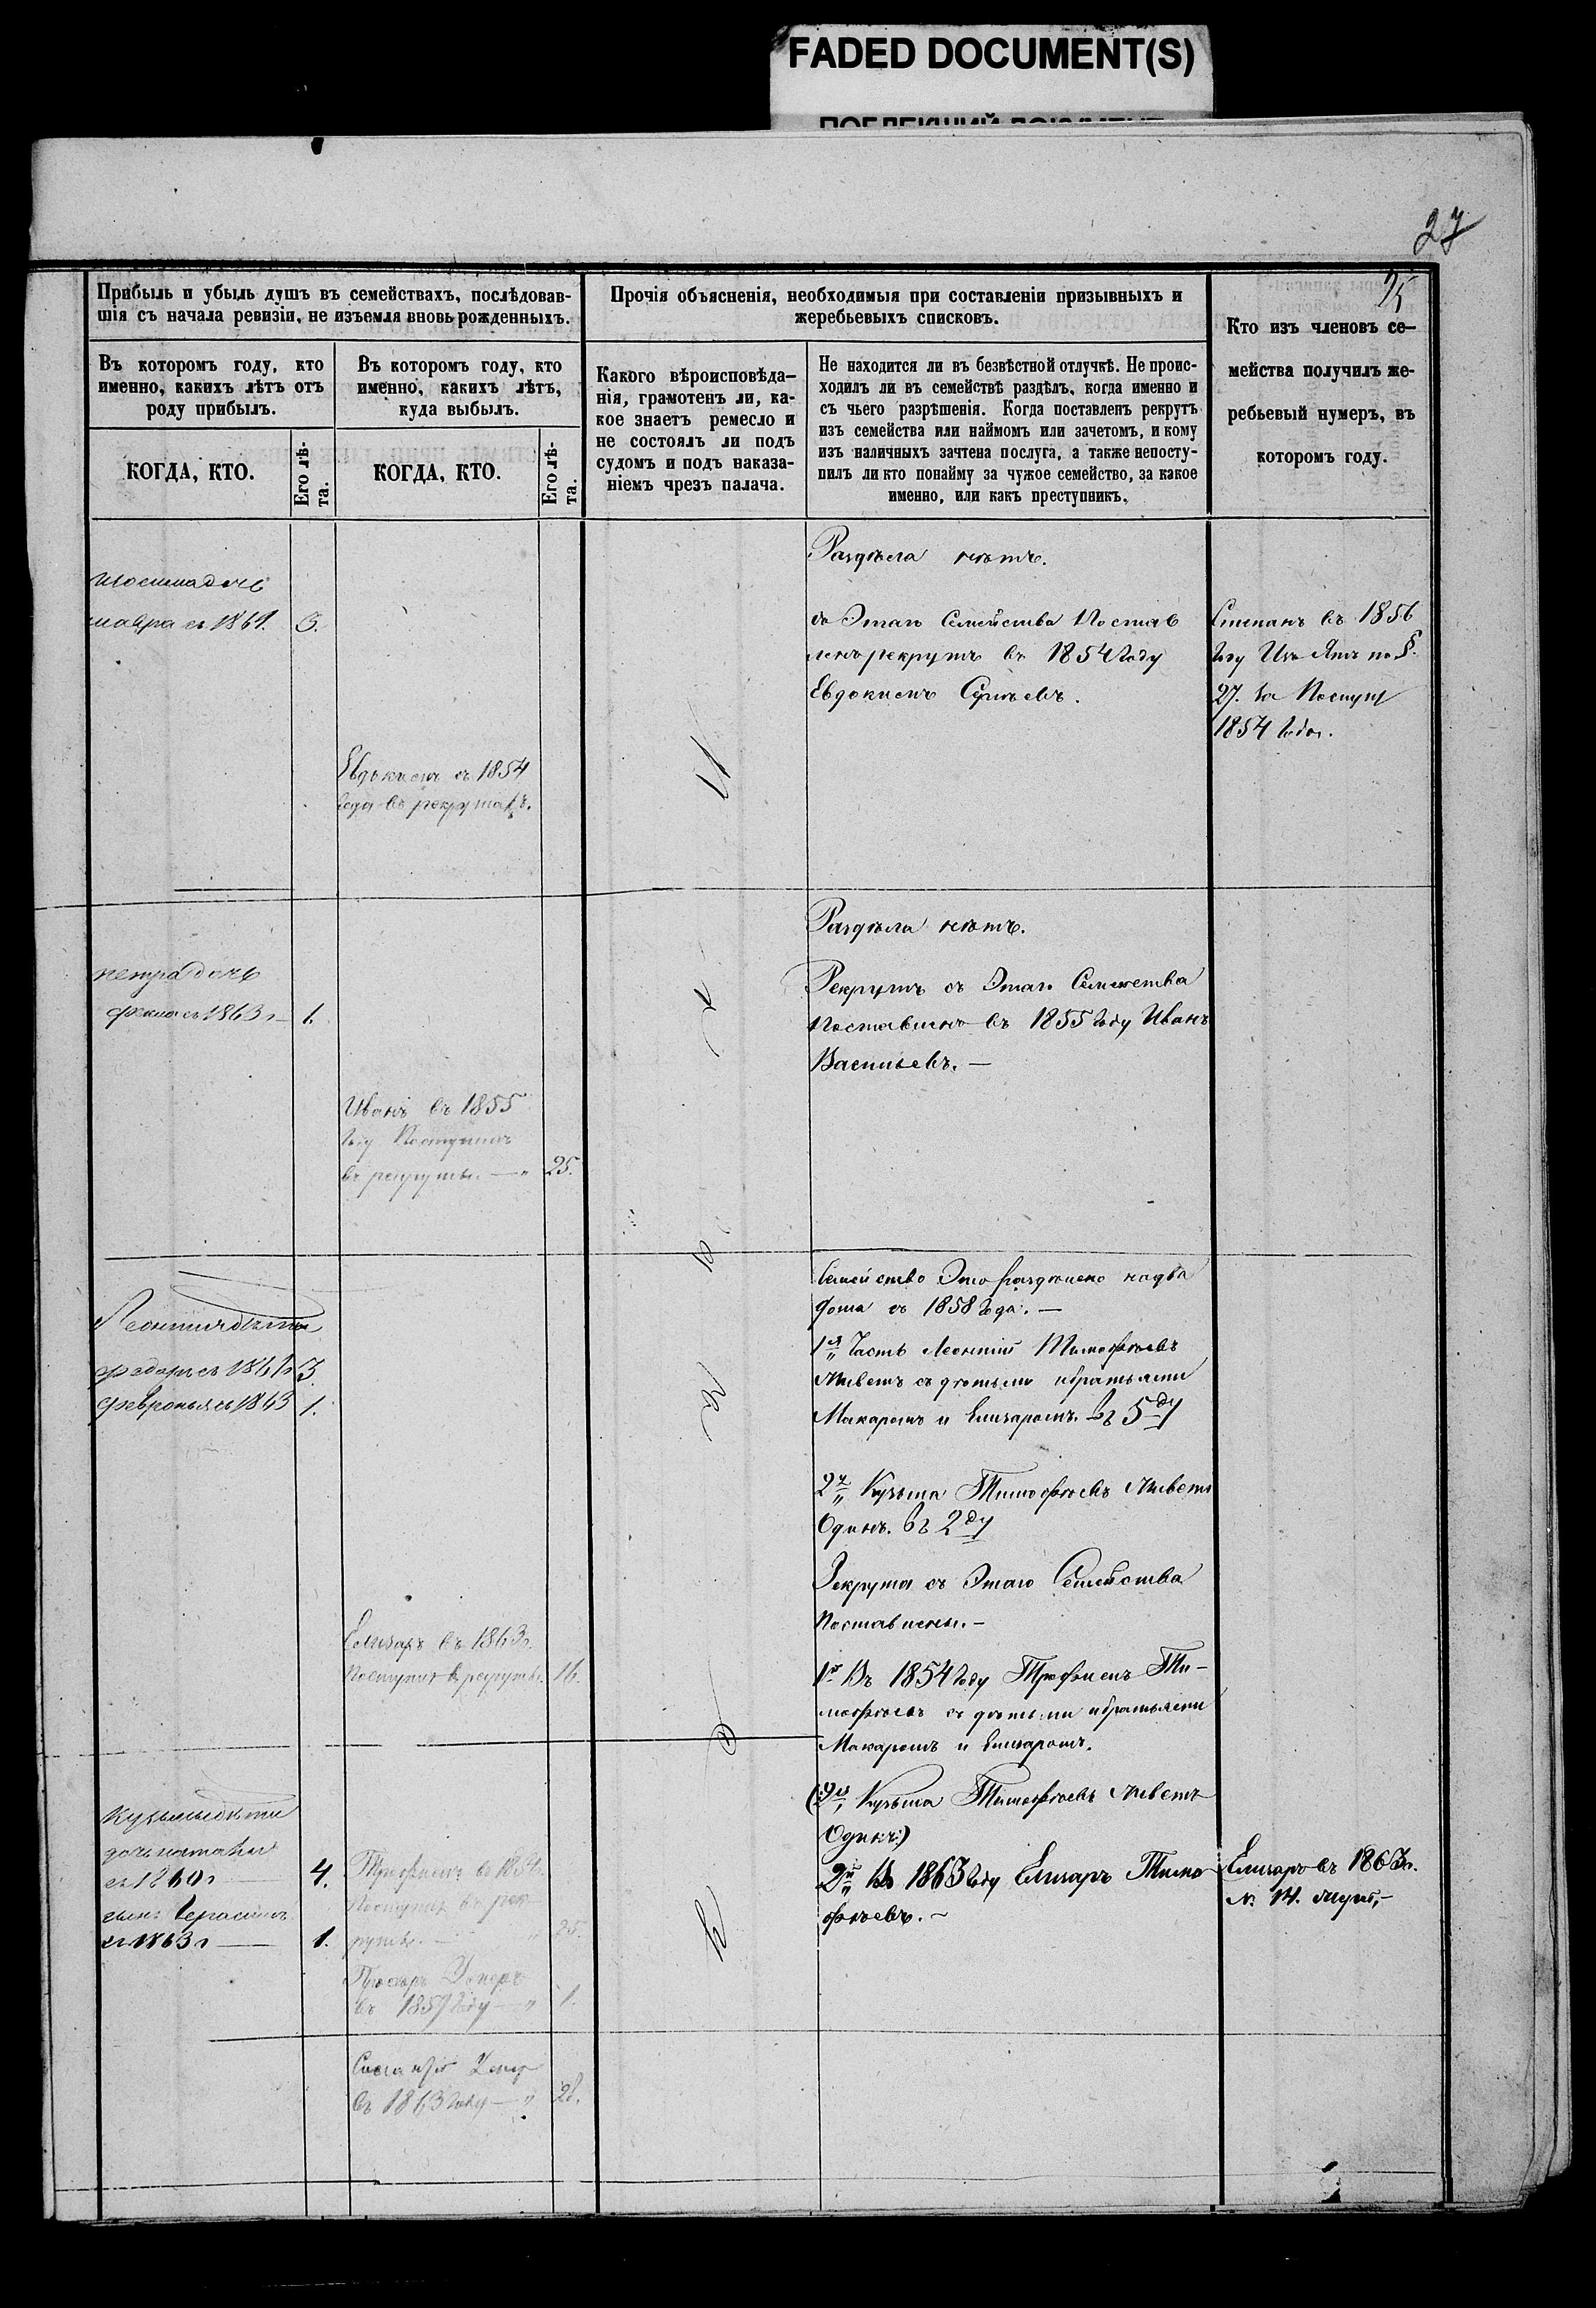 FADED DOCUMENT(S)
27
25
Прибыль и убыль душъ въ семействахъ, послѣдовав-
шія съ начала ревизіи, не изъемля вновь рожденныхъ.
Прочія объясненія, необходимыя при составленіи призывныхъ и
жеребьевыхъ списковъ.
Кто изъ членовъ се-
мейства получилъ же-
ребьевый нумеръ, въ
которомъ году.
Въ которомъ году, кто
именно, какихъ лѣтъ отъ
роду прибылъ.
Въ которомъ году, кто
именно, какихъ лѣтъ,
куда выбылъ.
Какого вѣроисповѣда-
нія, грамотенъ ли, ка-
кое знаетъ ремесло и
не состоялъ ли подъ
судомъ и подъ наказа-
ніемъ чрезъ палача.
Не находится ли въ безвѣстной отлучкѣ. Не проис-
ходилъ ли въ семействѣ раздѣлъ, когда именно и
съ чьего разрѣшенія. Когда поставленъ рекрутъ
изъ семейства или наймомъ или зачетомъ, и кому
изъ наличныхъ зачтена послуга, а также непосту-
пилъ ли кто понайму за чужое семейство, за какое
именно, или какъ преступникъ.
КОГДА, КТО.
Его лѣ-
та.
КОГДА, КТО.
Его лѣ-
та.
дочь
мавра съ 1861. 3.
Евдокимъ съ 1854
года въ рекрутахъ.
Раздѣла нѣтъ.
Этаго Семейства Постав
ленъ рекрутъ въ 1854 Году
Евдокимъ
Степанъ въ 1856
Году по §.
27. за
1854 Года.
петра дочь
фекла съ 1863 г 1.
Иванъ въ 1855
Году Поступилъ
въ рекруты. — " 25.
Раздѣла нѣтъ.
Рекрутъ съ Этаго Семейства
Поставленъ въ 1855 Году Иванъ
Васильевъ. —
Леонтія дѣти
федоръ съ 1861 г 3.
февронья съ 1863 1.
Елизаръ въ 1863 г.
Поступилъ в рекруты. 16.
Семейство Это раздѣлено на два
дома съ 1858 Года. —
1я Часть Леонтій Тимофѣевъ
живетъ съ дѣтьми и братьями
Макаромъ и Елизаромъ. Въ 5 ду
2я Кузьма Тимофѣевъ живетъ
Одинъ. Въ 2 ду
Рекрута съ Этаго Семейства
Поставлены. —
1й Въ 1854 Году Трофимъ Ти-
мофѣевъ съ дѣтьми и братьями
Макаромъ и Елизаромъ.
(2я Кузьма Тимофѣевъ живетъ
Одинъ:)
2й Въ 1863 Году Елизаръ Тимо
фѣевъ. —
Кузьмы дѣти
дочь наталья
съ 1860 г 4.
сынъ Герасимъ
съ 1863 г — 1.
Трофимъ въ 1854.
Поступилъ въ рек
руты. — " 25.
Умеръ
въ 1857 Году — " 1.
въ 1863 Году — " 28.
Елизаръ въ 1863 г.
№ 14.